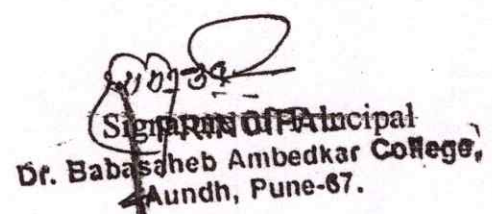 Signature of Principal
PRINCIPAL
Dr. Babasaheb Ambedkar College,
Aundh, Pune-67.